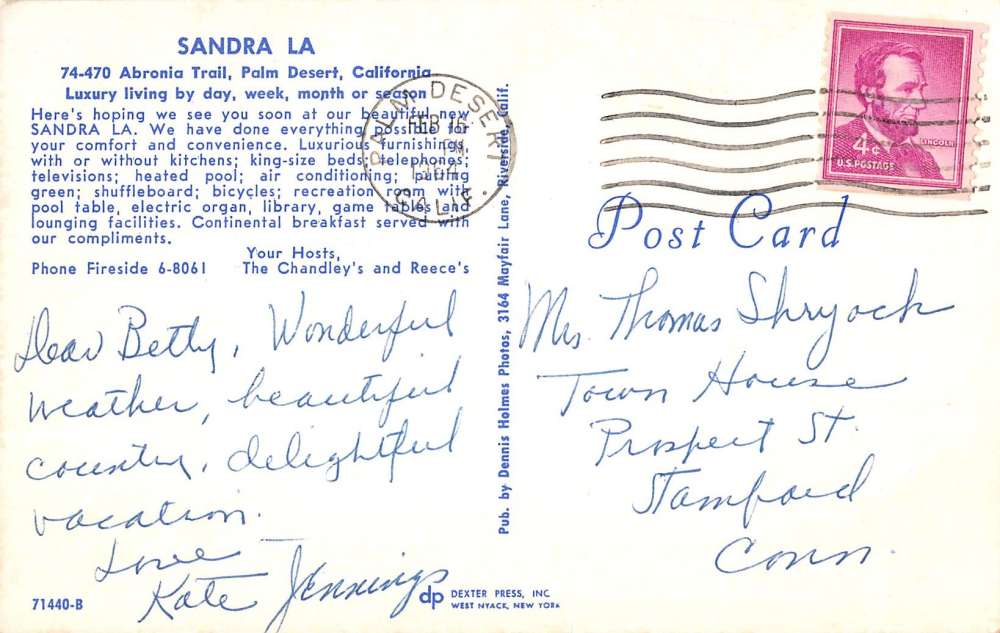 SANDRA LA
74-470 Abronia Trail, Palm Desert, California
Luxury living by day, week, month or season
Here's hoping we see you soon at our beautiful new
SANDRA LA. We have done everything possible for
your comfort and convenience. Luxurious furnishings
with or without kitchens; king-size beds; telephones;
televisions; heated pool; air conditioning; putting
green; shuffleboard; bicycles; recreation room with
pool table, electric organ, library, game tables and
lounging facilities. Continental breakfast served with
our compliments.
Your Hosts,
Phone Fireside 6-8061 The Chandley's and Reece's
PALM DESERT
FEB 15
PM
CALIF.
Dear Betty, Wonderful
weather, beautiful
country, delightful
vacation.
Love
Kate Jennings
71440-B
dp DEXTER PRESS, INC
WEST NYACK, NEW YORK
Pub. by Dennis Holmes Photos, 3164 Mayfair Lane, Riverside, Calif.
4¢
LINCOLN
U.S. POSTAGE
Post Card
Mrs. Thomas Shryock
Town House
Prospect St.
Stamford
Conn.